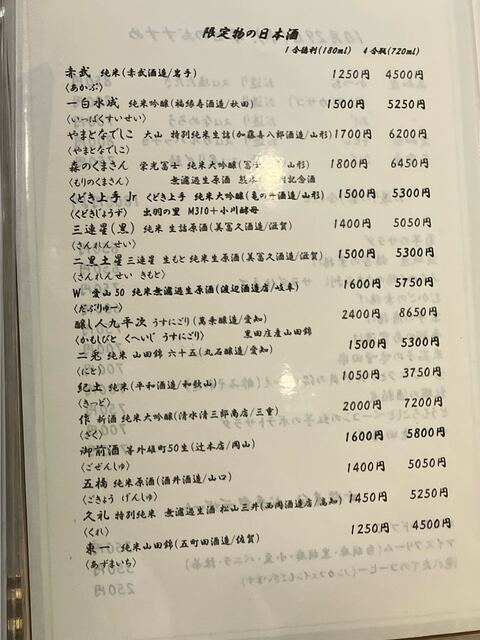 限定物の日本酒
1合徳利(180ml) 4合瓶(720ml)
赤武 純米(赤武酒造/岩手) 1250円 4500円
(あかぶ)
一白水成 純米吟醸(福禄寿酒造/秋田) 1500円 5250円
(いっぱくすいせい)
やまとなでしこ 大山 特別純米生詰(加藤喜八郎酒造/山形) 1700円 6200円
(やまとなでしこ)
森のくまさん 栄光冨士 純米大吟醸(冨士 山形) 1800円 6450円
(もりのくまさん) 無濾過生原酒 熊本 記念酒
くどき上手 Jr くどき上手 純米大吟醸(亀の井酒造/山形) 1500円 5300円
(くどきじょうず) 出羽の里 M310+小川酵母
三連星(黒) 純米 生詰原酒(美冨久酒造/滋賀) 1400円 5050円
(さんれんせい)
二黒土星 三連星 生もと 純米生原酒(美冨久酒造/滋賀) 1500円 5300円
(さんれんせい きもと)
W 愛山50 純米無濾過生原酒(渡辺酒造店/岐阜) 1600円 5750円
(だぶりゅー)
醸し人九平次 うすにごり(萬乗醸造/愛知) 2400円 8650円
(かもしびと くへいじ うすにごり) 黒田庄産山田錦
二兎 純米 山田錦 六十五(丸石醸造/愛知) 1500円 5300円
(にと)
紀土 純米(平和酒造/和歌山) 1050円 3750円
(きっど)
作 新酒 純米大吟醸(清水清三郎商店/三重) 2000円 7200円
(ざく)
御前酒 等外雄町50生(辻本店/岡山) 1600円 5800円
(ごぜんしゅ)
五橋 純米原酒(酒井酒造/山口) 1400円 5050円
(ごきょう げんしゅ)
久礼 特別純米 無濾過生酒 松山三井(西岡酒造店/高知) 1450円 5250円
(くれ)
東一 純米山田錦(五町田酒造/佐賀) 1250円 4500円
(あずまいち)